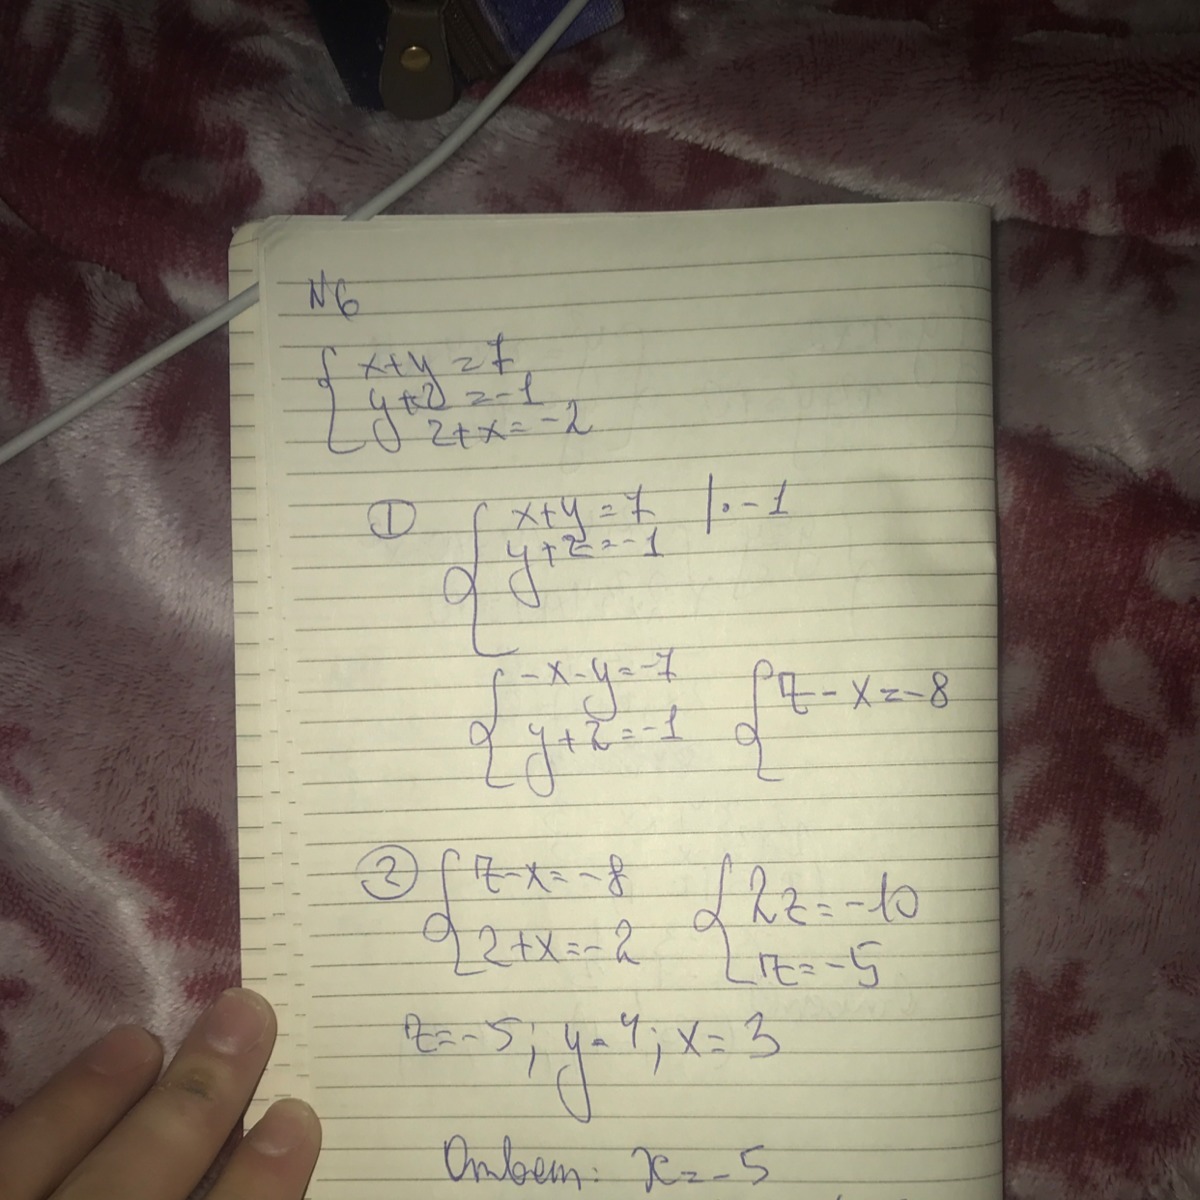 №6
x+y=7
y+z=-1
z+x=-2
① x+y=7 |·-1
y+z=-1
-x-y=-7 z-x=-8
y+z=-1
② z-x=-8 2z=-10
z+x=-2 z=-5
z=-5; y=4; x=3
Ответ: x=-5